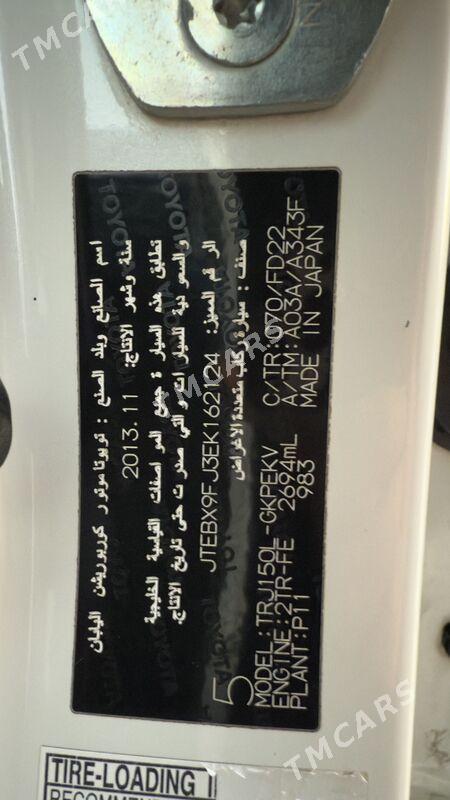 TMCARS
اسم الصانع وبلد الصنع : تويوتا موتور كوربوريشن اليابان
سنة وشهر الانتاج: 2013.11
تطابق هذه السيارة جميع المواصفات القياسية الخليجية
والسعودية للسيارات والتي صدرت حتى تاريخ الانتاج.
الرقم المميز: JTEBX9FJ3EK162124
صنف : سيارة ركاب متعددة الاغراض
5
MODEL:TRJ150L-GKPEKV C/TR:070/FD22
ENGINE:2TR-FE 2694mL A/TM:A03A/A343F
PLANT:P11 983 MADE IN JAPAN
TIRE-LOADING
TMCARS